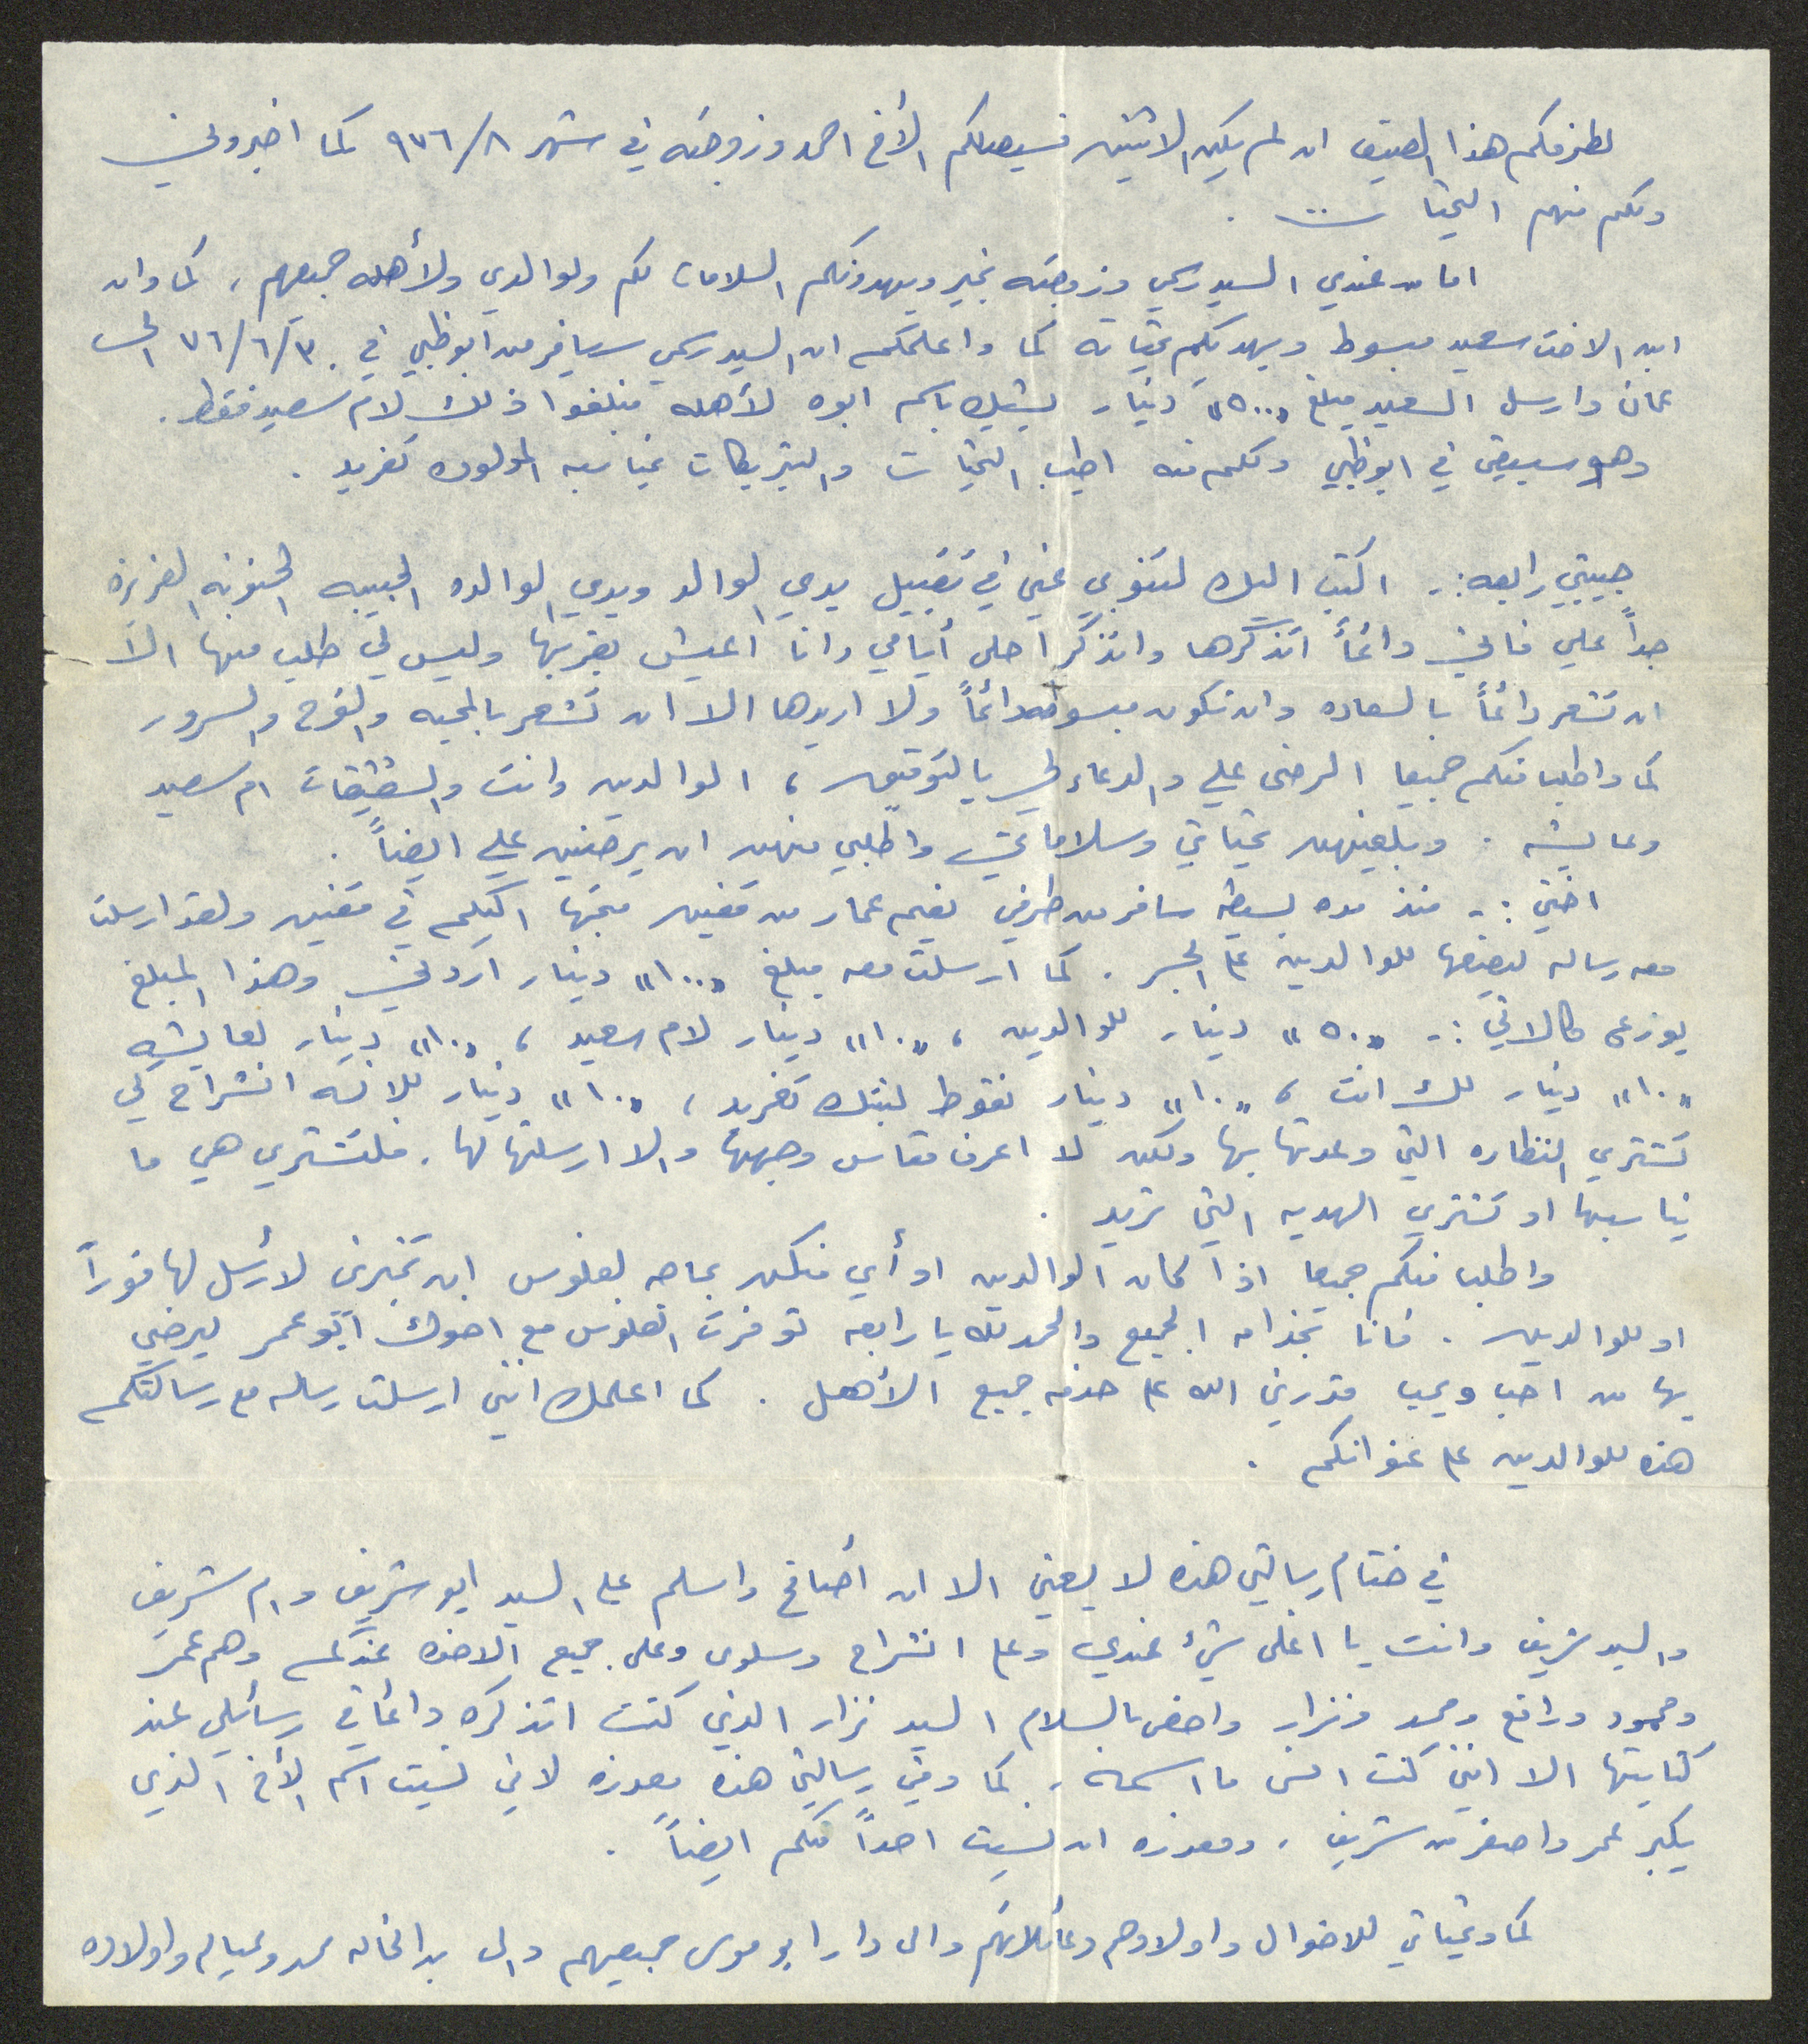 لطرفكم هذا الصيف ان لم يكن الاثنين فسيصلكم الأخ احمد وزوجته في شهر ٩٧٦/٨ كما اخبروني
ولكم منهم التحيات .
اما من عندي السيد رسمي وزوجته بخير ويهدونكم السلامات لكم ولوالدي ولأهله جميعهم ، كما وان
ابن الاخت سعيد مبسوط ويهديكم تحياته كما واعلمكم ان السيد رسمي سيسافر من ابوظبي في ٧٦/٦/٣٠ الى
عمان وارسل السعيد مبلغ "٥٠٠" دينار بشيك باسم ابوه لأهله فبلغوا ذلك لام سعيد فقط .
وهو سيبقى في ابوظبي ولكم منه اطيب التحيات والتبريكات بمناسبه المولوده تغريد .
حبيبتي رابعه :- اكتب اليك لتنوبي عني في تقبيل يدي الوالد ويدي الوالده الحبيبه الحنونه العزيزه
جداً علي فاني دائماً اتذكرها واتذكر احلى أيامي وانا اعيش بقربها وليس لي طلب منها الا
ان تشعر دائماً بالسعاده وان تكون مبسوطه دائماً ولا اريدها الا ان تشعر بالمحبه والفرح والسرور
كما واطلب منكم جميعا الرضى علي والدعاء لي بالتوفيق ، الوالدين وانت والشقيقات ام سعيد
وعايشه . وبلغيهن تحياتي وسلاماتي واطلبي منهن ان يرضين علي ايضاً .
اختي :- منذ مده بسيطه سافر من طرفي نعيم عمار من قفين متجها اليكم في قفين ولقد ارسلت
معه رساله ليضعها للوالدين على الجسر . كما ارسلت معه مبلغ "١٠٠" دينار اردني وهذا المبلغ
يوزع كالاتي :- "٥٠" دينار للوالدين ، "١٠" دينار لام سعيد ، "١٠" دينار لعايشه
"١٠" دينار لك انت ، "١٠" دينار نقوط لبنتك تغريد ، "١٠" دينار للانسه انشراح كي
تشتري النظاره التي وعدتها بها ولكن لا اعرف مقاس وجهها والا ارسلتها لها . فلتشتري هي ما
يناسبها او تشتري الهديه التي تريد .
واطلب منكم جميعا اذا كان الوالدين او أي منكن بحاجه لفلوس ان تخبرني لارسل لها فوراً
او للوالدين . فانا بخدامه الجميع والحمد لله يا رابعه توفرت الفلوس مع اخوك ابو عمر ليرضي
بها من احب ويحب قدرني الله على خدمه جميع الأهل . كما اعلمك انني ارسلت رساله مع رسالتكم
هذه للوالدين على عنوانكم .
في ختام رسالتي هذه لا يسعني الا ان أصافح واسلم على السيد ابو شريف وام شريف
والسيد شريف وانت يا اغلى شيء عندي وعلى انشراح وسلوى وعلى جميع الاخوه عندكم وهم عمر
ومحمود ورافع ومحمد ونزار واخص بالسلام السيد نزار الذي كنت اتذكره دائما في رسائلي عند
كتابتها الا انني كنت انسى ما اسمه . كما وفي رسالتي هذه معذره لاني نسيت اسم الأخ الذي
يكبر عمر واصغر من شريف . ومعذره ان نسيت احداً منكم ايضاً .
كما وتحياتي للاخوال واولادهم وعائلاتهم والى دار ابو موسى جميعهم والى محمد وعياله واولاده